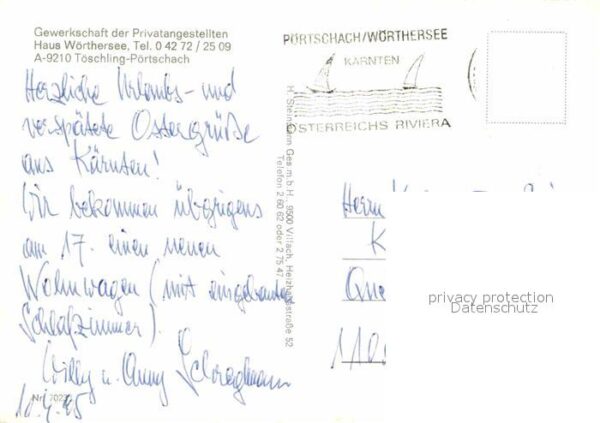 Gewerkschaft der Privatangestellten
Haus Wörthersee, Tel. 0 42 72 / 25 09
A-9210 Töschling-Pörtschach
Herzliche Urlaubs- und
verspätete Ostergrüße
aus Kärnten!
Wir bekommen übrigens
am 17. einen neuen
Wohnwagen (mit eingebautem
Schlafzimmer).
Willy u. Anny
10.4.85
PÖRTSCHACH/WÖRTHERSEE
KÄRNTEN
ÖSTERREICHS RIVIERA
Ges.m.b.H., 9500 Villach,
Telefon 2 60 62 oder 2 75 47
Herrn
K
Que
110
privacy protection
Datenschutz